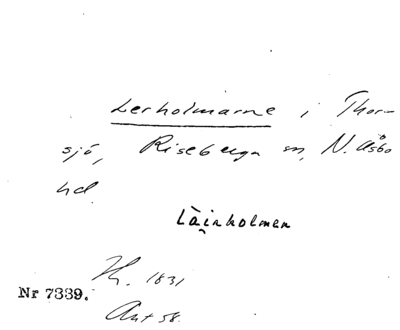 Lerholmarne i Thor-
sjö, Riseberga sn, N. Åsbo
hd.
Läirholmen
1831
Nr 7339.
Ant 58.